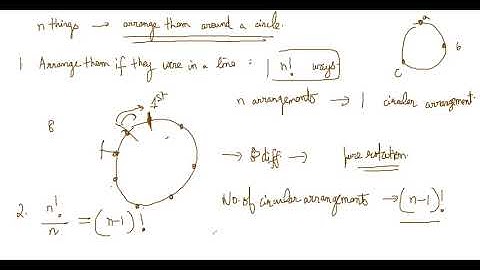 n things → arrange them around a circle.
a
b
c
1 Arrange them if they were in a line = n! ways
n arrangements → 1 circular arrangement.
1st
8
→ 8 diff → pure rotation
2. n!/n = (n-1)!
No. of circular arrangements → (n-1)!